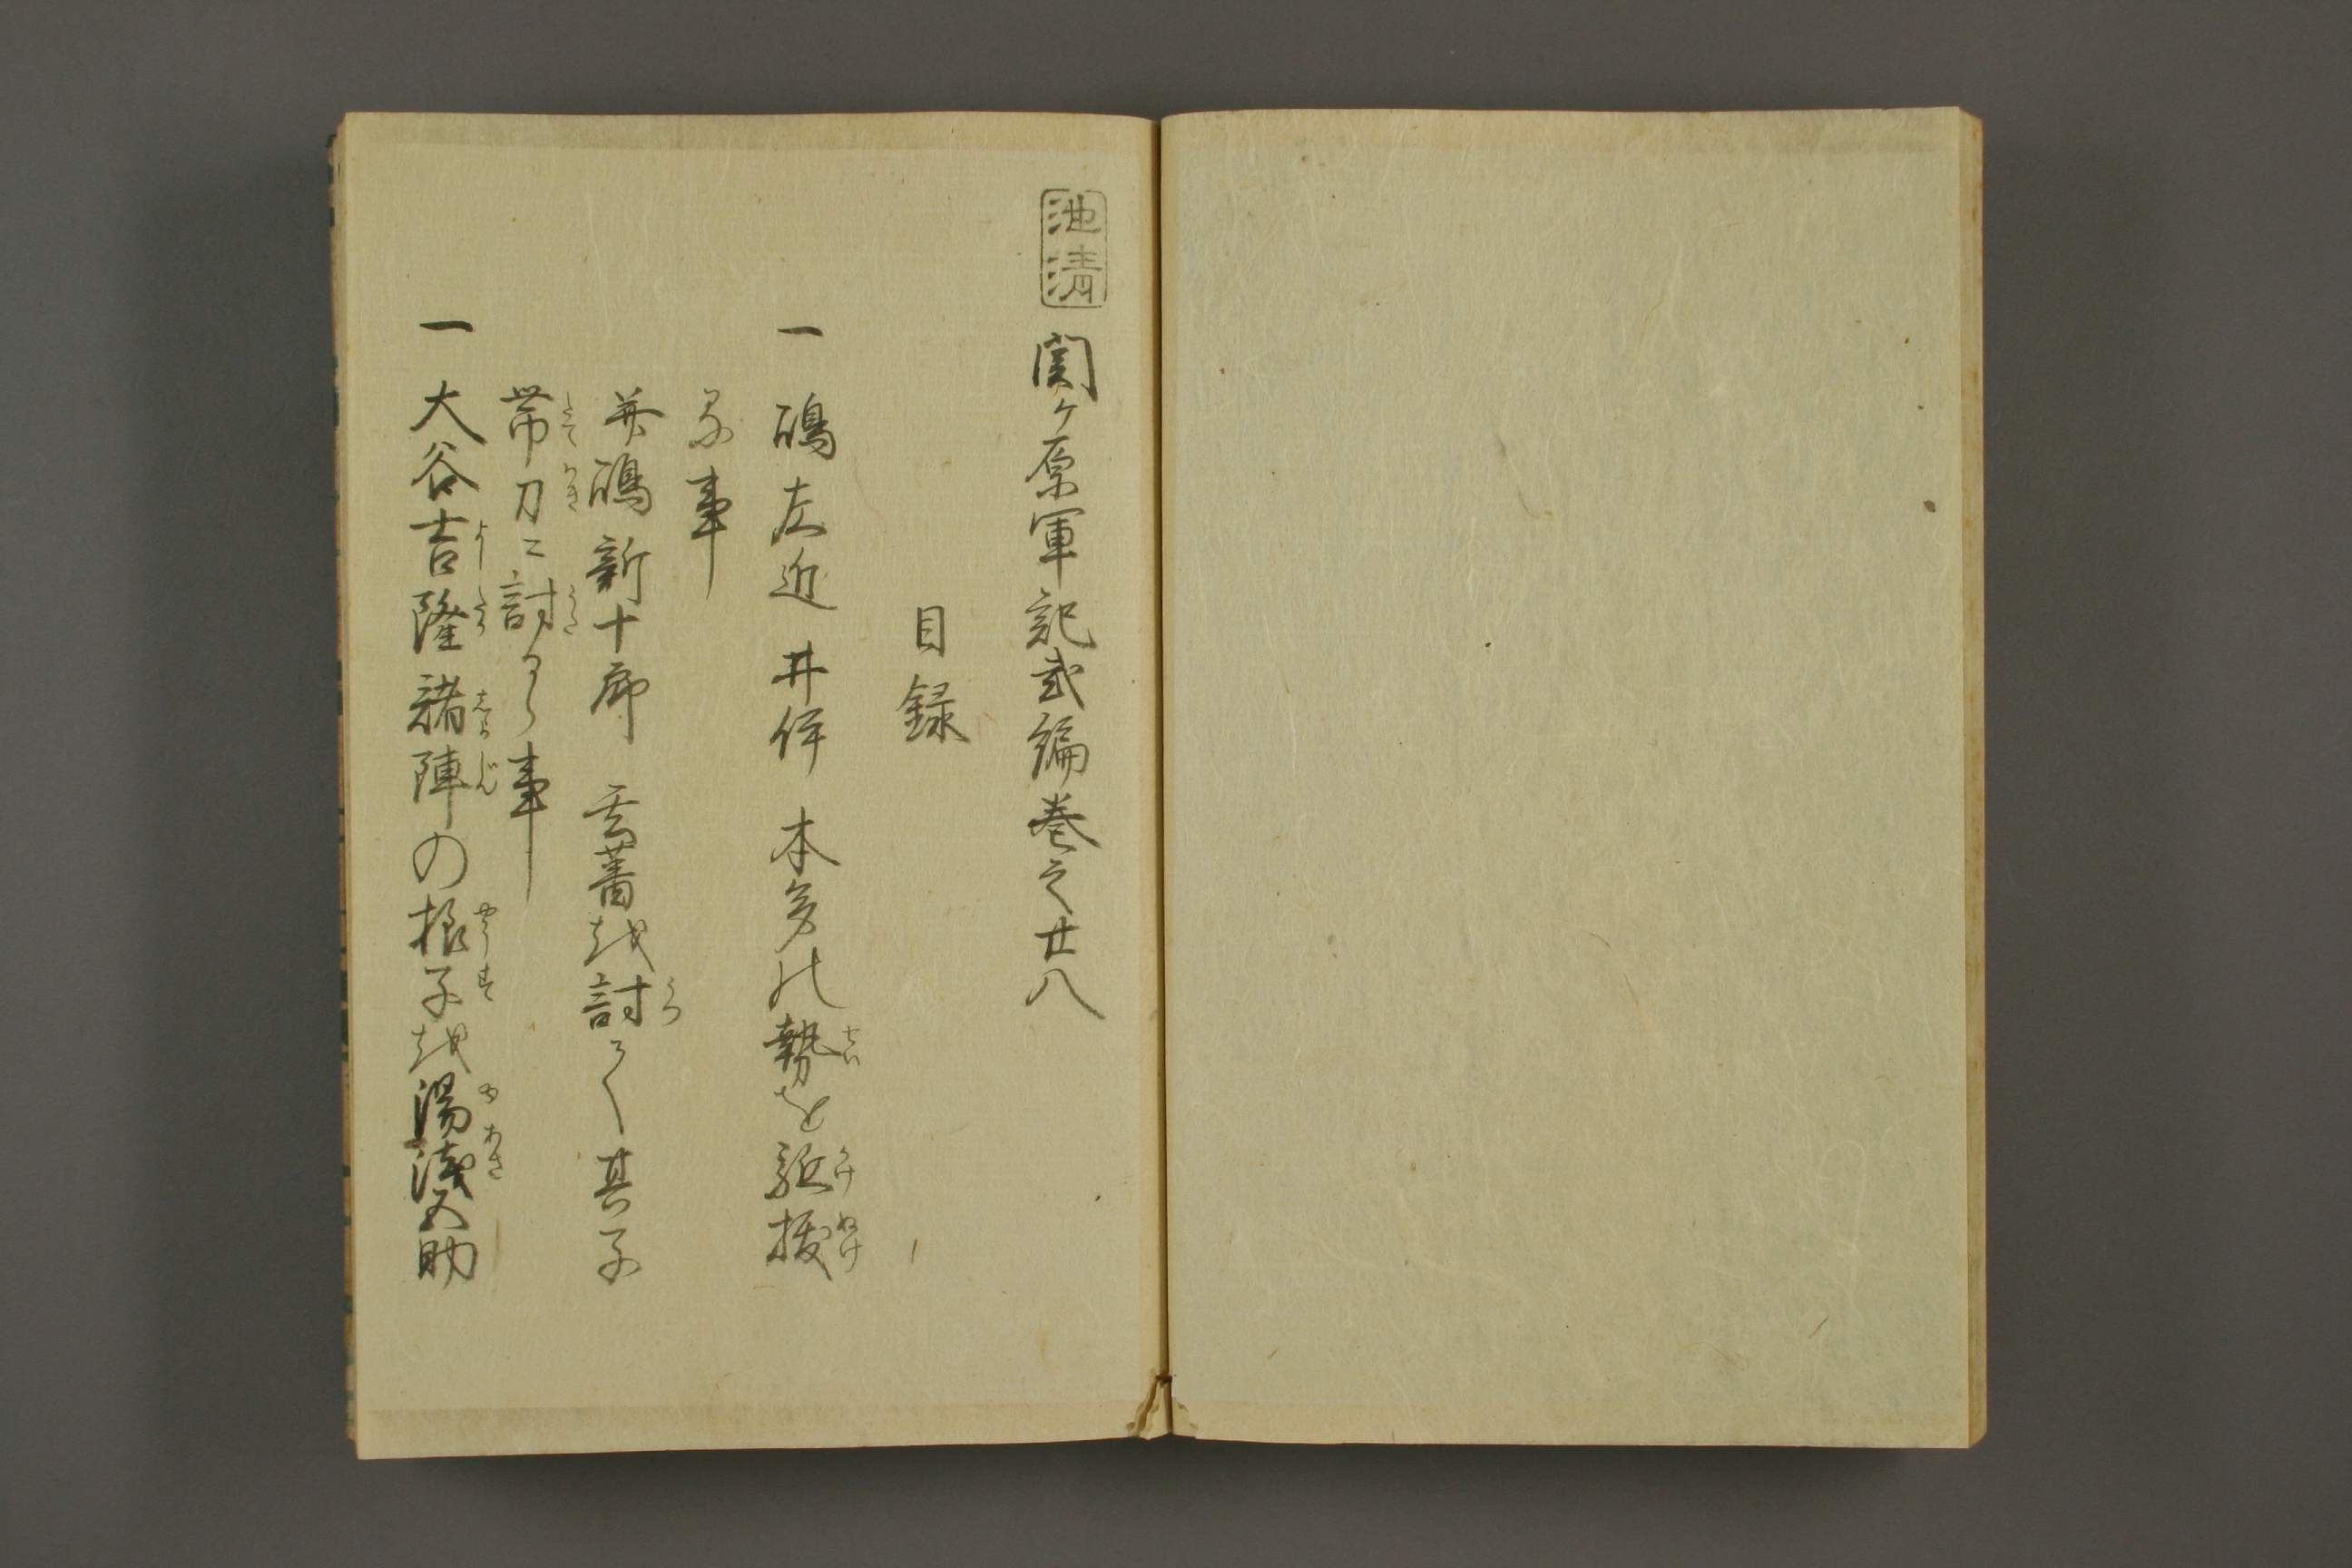 池清
関ヶ原軍記弐編巻之廿八
目録
一 嶋左近井伊本多の勢を駈抜
る事
并嶋新十郎玄蕃を討て其子
帯刀に討るゝ事
一 大谷吉隆諸陣の様子を湯浅五助